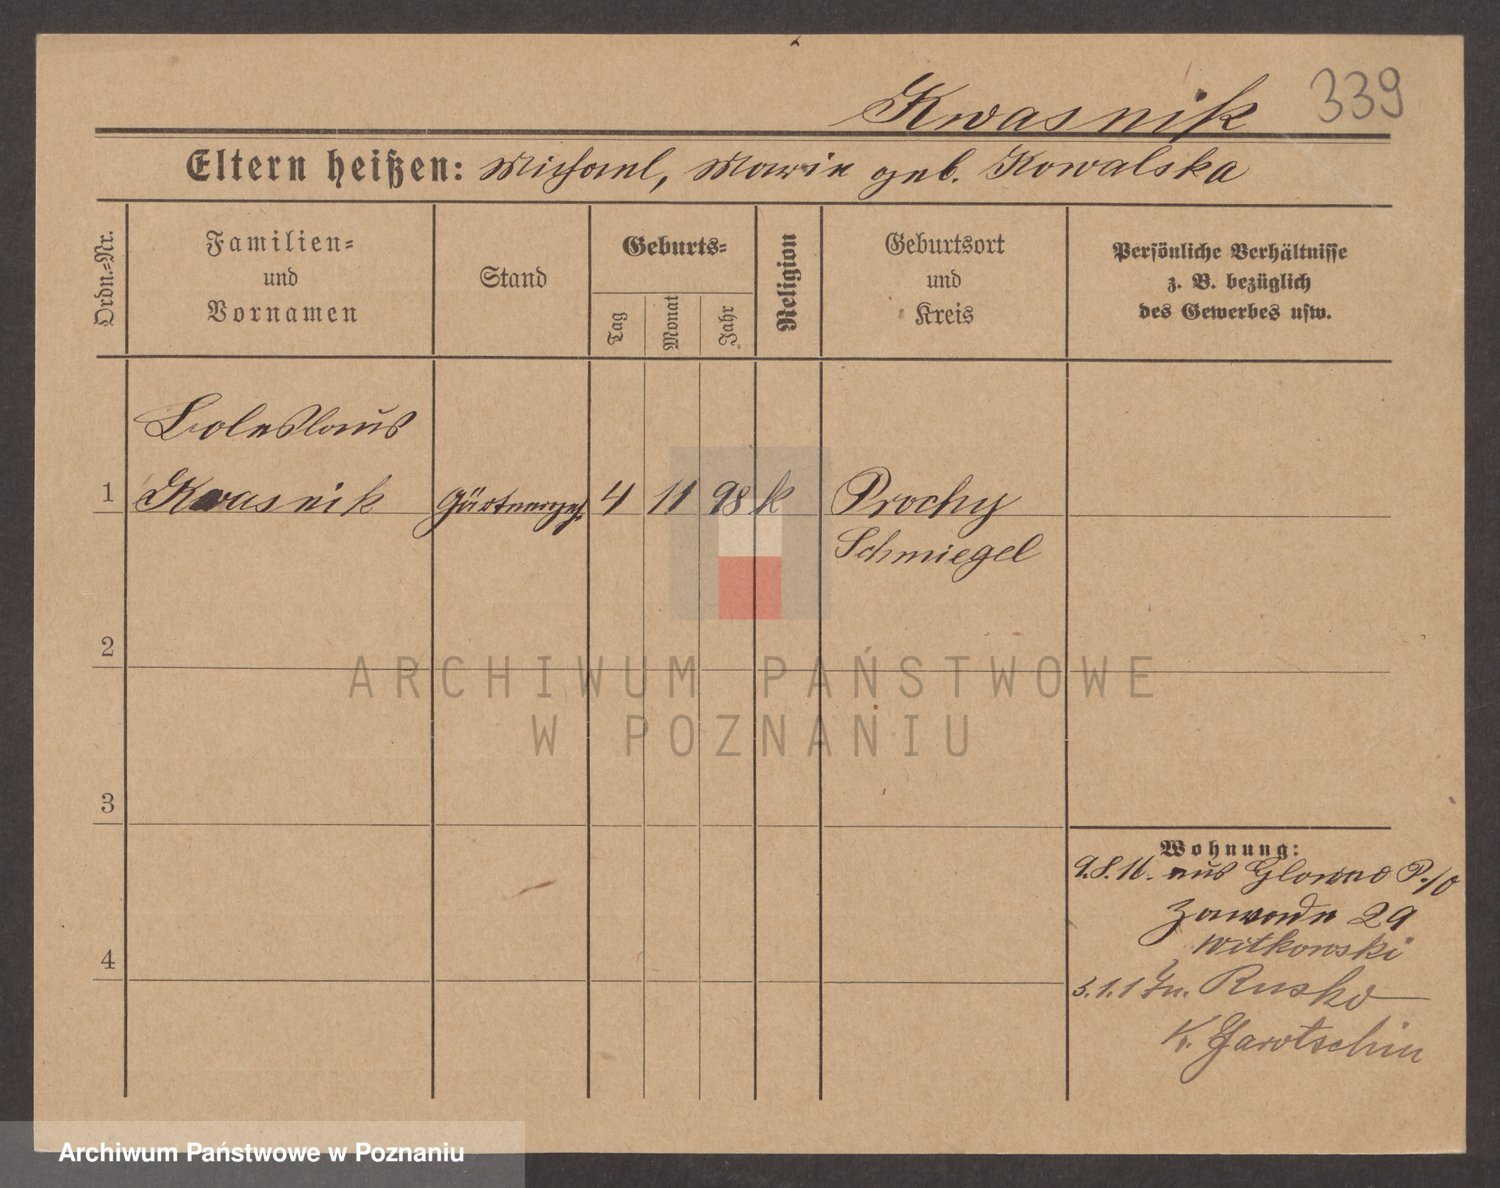 Kwasnik 339
Eltern heißen: Michael, Marie geb. Kowalska
Ordn.=Nr.
Familien=
und
Vornamen
Stand
Geburts=
Tag
Monat
Jahr
Religion
Geburtsort
und
Kreis
Persönliche Verhältnisse
z. B. bezüglich
des Gewerbes usw.
Boleslaus
1 Kwasnik Gärtnergeh. 4 11 98 k Prochy
Schmiegel
2
3
4
Wohnung:
9.8.16. aus Glowno P./O
Zawade 29
Witkowski
Rusko
K. Jarotschin
ARCHIWUM PAŃSTWOWE
W POZNANIU
Archiwum Państwowe w Poznaniu